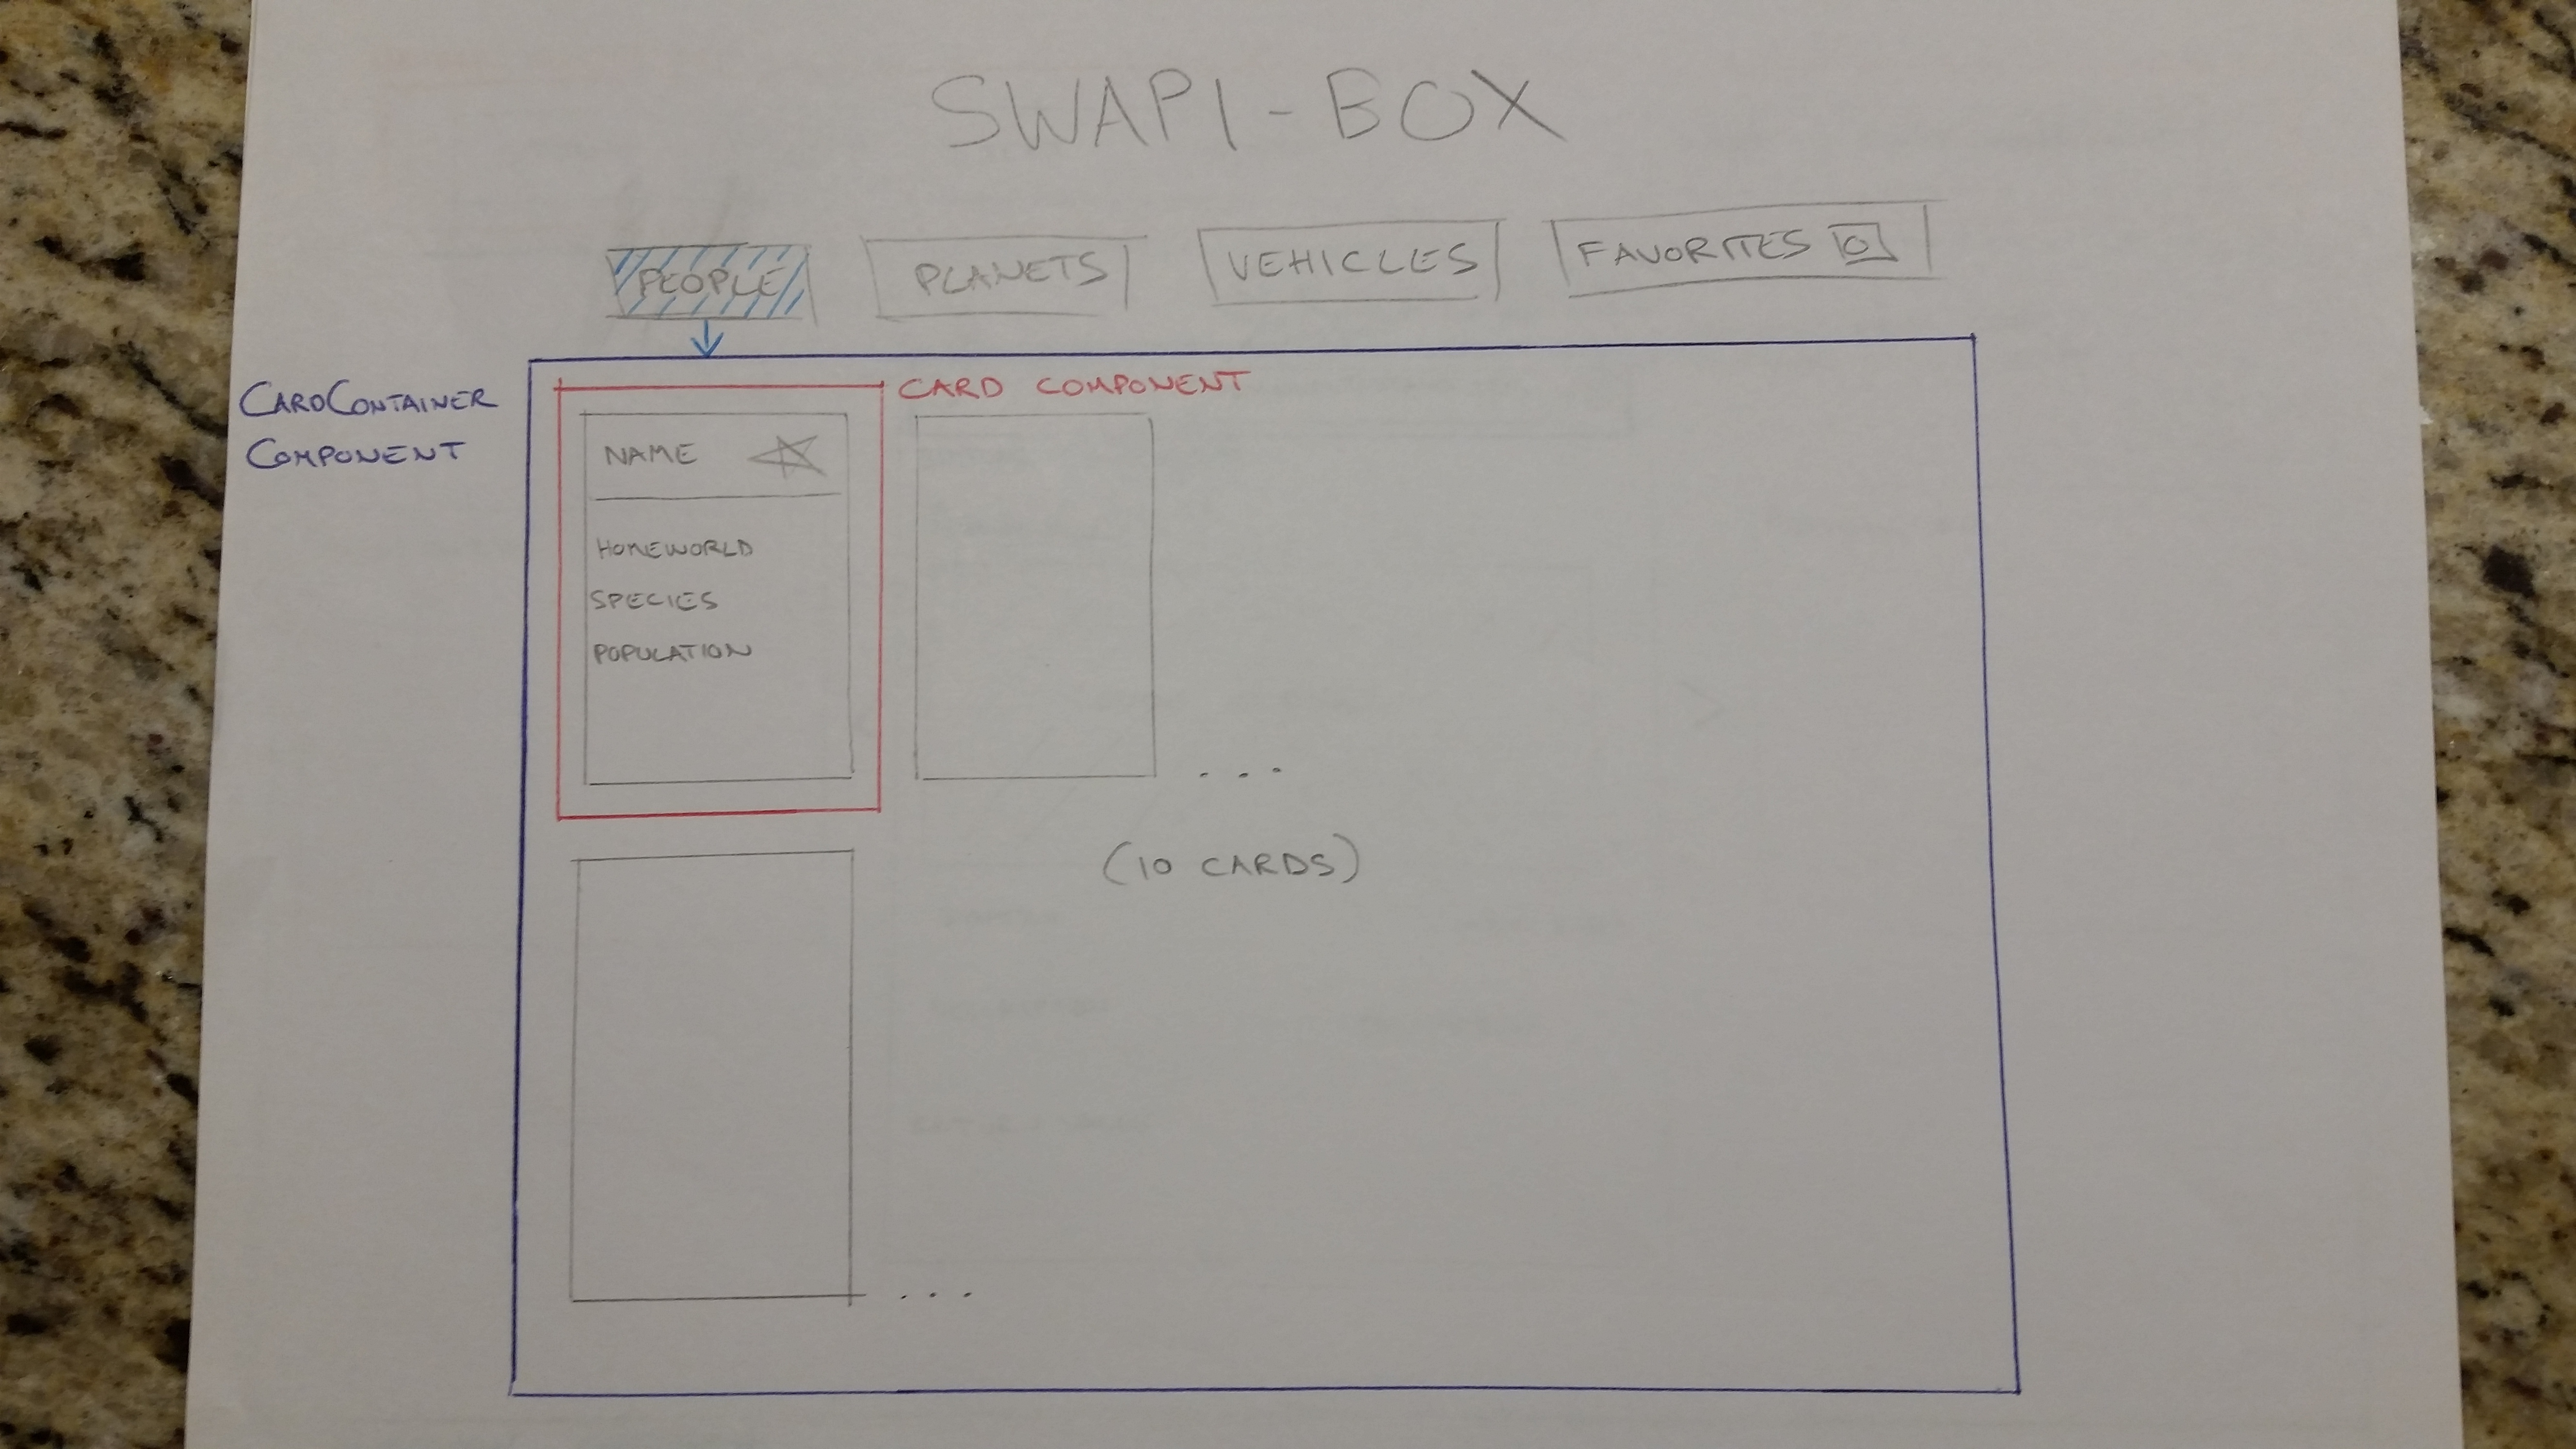 SWAPI - BOX
PEOPLE
PLANETS
VEHICLES
FAVORITES 0
CARDCONTAINER
COMPONENT
CARD COMPONENT
NAME
HOMEWORLD
SPECIES
POPULATION
...
(10 CARDS)
...